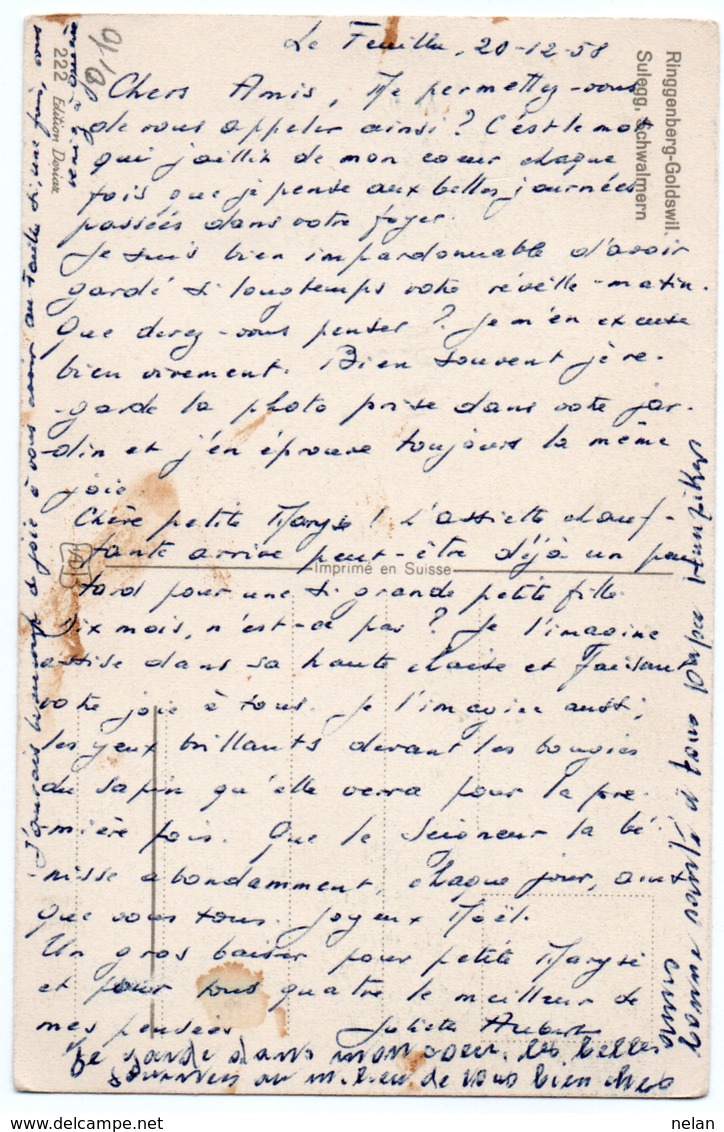 Le Feuillu, 20-12-58
Chers Amis, Me permettez-vous
de vous appeler ainsi? C'est le mot
qui jaillit de mon coeur chaque
fois que je pense aux belles journées
passées dans votre foyer.
Je suis bien impardonnable d'avoir
gardé si longtemps votre réveille-matin.
Que devez-vous penser? Je m'en excuse
bien vivement. Bien souvent je re-
garde la photo prise dans votre jar-
din et j'en éprouve toujours la même
joie.
Chère petite Maryse! L'assiette chauf-
fante arrive peut-être déjà un peu
tard pour une si grande petite fille.
Dix mois, n'est-ce pas? Je l'imagine
assise dans sa haute chaise et faisant
votre joie à tous. Je l'imagine aussi,
les yeux brillants devant les bougies
du sapin qu'elle verra pour la pre-
mière fois. Que le Seigneur la bé-
nisse abondamment, chaque jour, ainsi
que vous tous. Joyeux Noël.
Un gros baiser pour petite Maryse
et pour tous quatre le meilleur de
mes pensées Juliette Aubert
Je garde dans mon coeur les belles
journées au milieu de vous bien chers
amis
Bonne année à toute
J'aurais beaucoup de joie à vous avoir au Feuillu si, une fois, vous
Ringgenberg-Goldswil.
Sulegg, Schwalmern
222 Edition Doriaz
Imprimé en Suisse
nelan